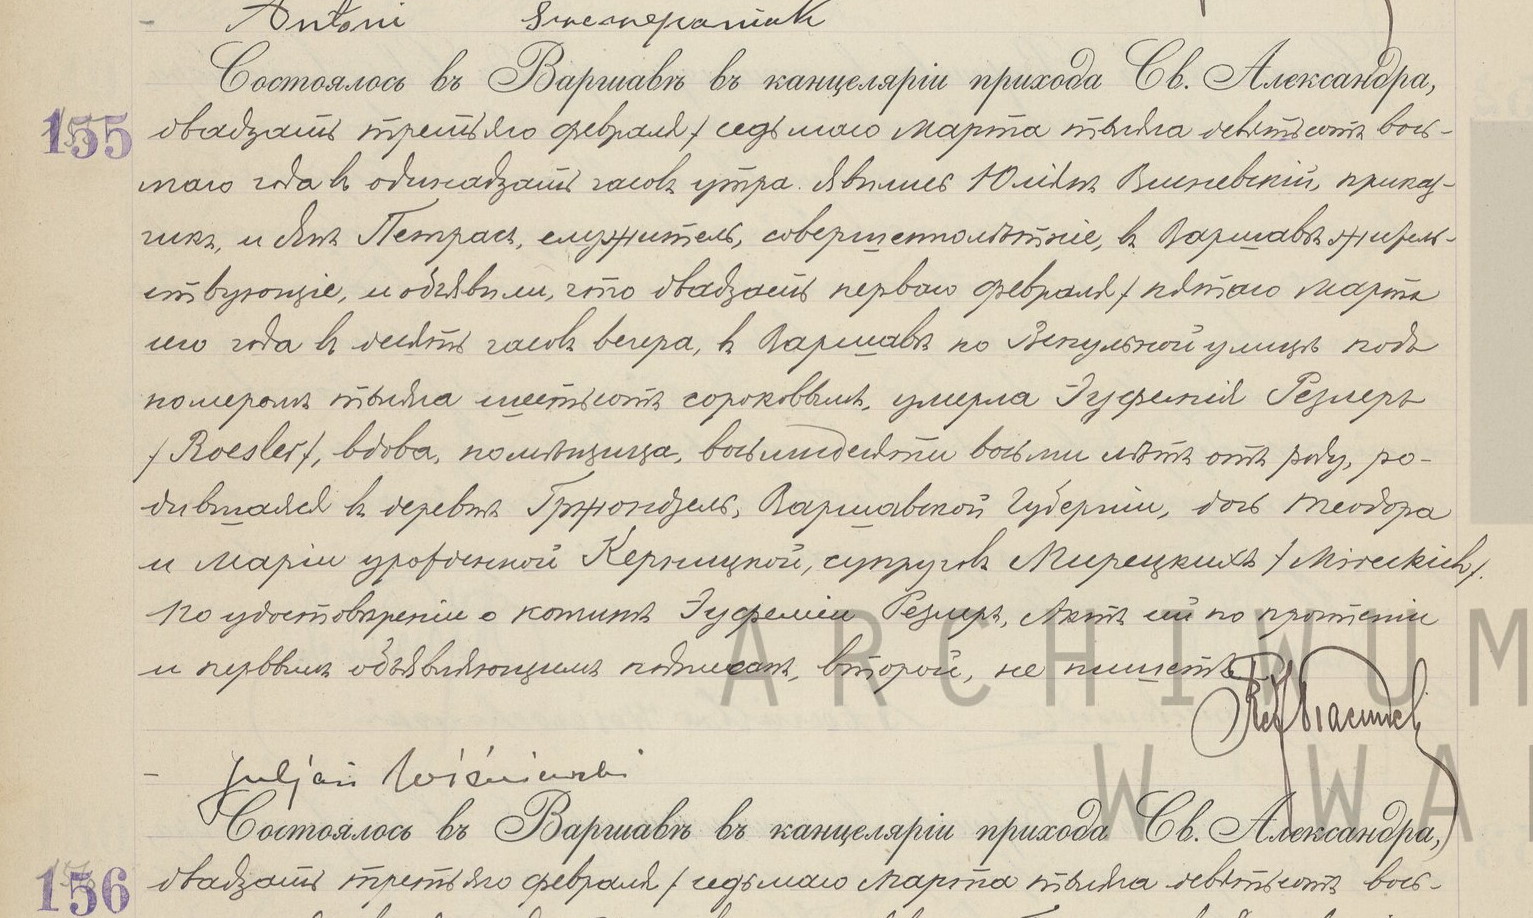 Antoni Szczepaniak
Состоялось въ Варшавѣ въ канцеляріи прихода Св. Александра,
155 двадцать третьяго февраля / седьмаго марта тысяча девятьсотъ вось-
маго года въ одинадцать часовъ утра. Явились Юліянъ Вишневскій, приказ-
чикъ, и Янъ Петрасъ, служитель, совершеннолѣтніе, въ Варшавѣ житель-
ствующіе, и объявили, что двадцать перваго февраля / пятаго марта
сего года въ десять часовъ вечера, въ Варшавѣ по Вспульной улицѣ подъ
номеромъ тысяча шестьсотъ сороковымъ, умерла Эуфемія Резлеръ
/Roesler/, вдова, помѣщица, восьмидесяти восьми лѣтъ отъ роду, ро-
дившаяся въ деревнѣ Гржондзель, Варшавской Губерніи, дочь Теодора
и Маріи урожденной Керницкой, супруговъ Мирецкихъ /Mireckich/.
По удостовѣреніи о кончинѣ Эуфеміи Резлеръ, Актъ сей по прочтеніи
и первымъ объявляющимъ подписанъ, второй, не пишетъ.
Juljan Wiśniewski
Состоялось въ Варшавѣ въ канцеляріи прихода Св. Александра,
156 двадцать третьяго февраля / седьмаго марта тысяча девятьсотъ вось-
ARCHIWUM
W WA